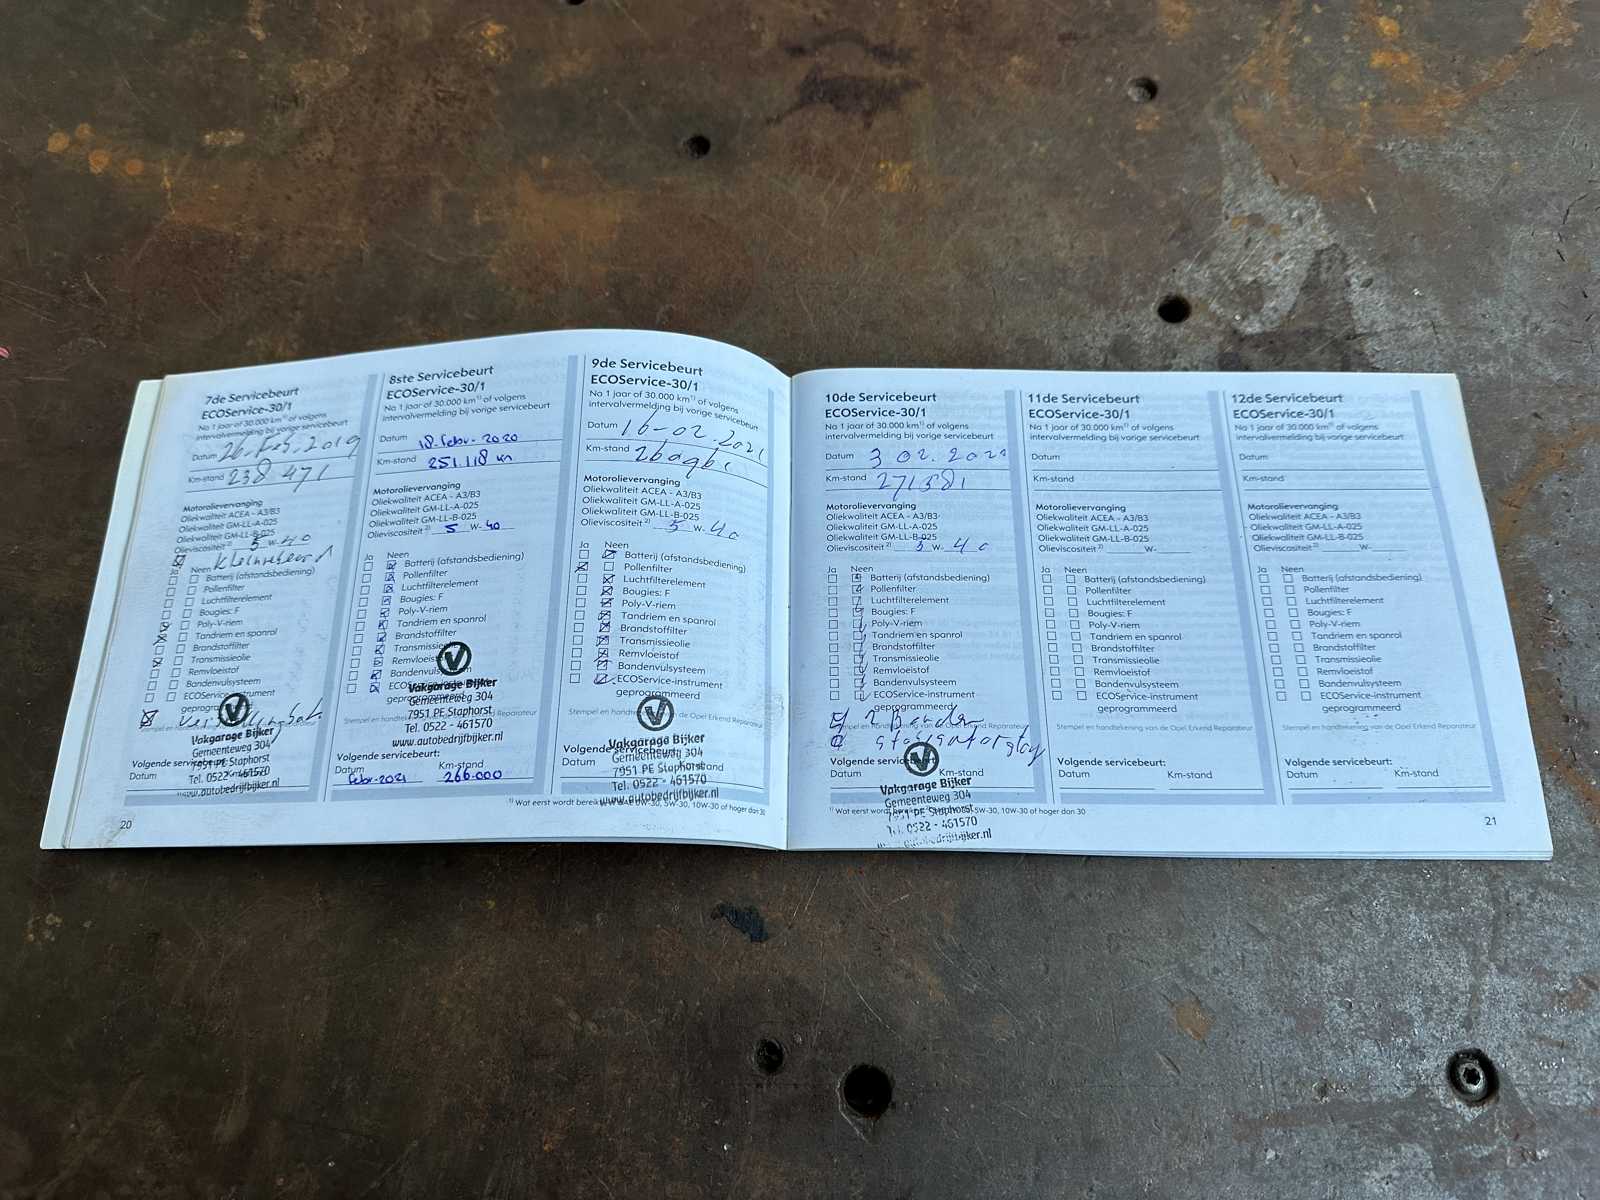 7de Servicebeurt
ECOService-30/1
Na 1 jaar of 30.000 km1) of volgens
intervalvermelding bij vorige servicebeurt
Datum 26. Feb. 2019
Km-stand 238 471
Motorolievervanging
Oliekwaliteit ACEA - A3/B3
Oliekwaliteit GM-LL-A-025
Oliekwaliteit GM-LL-B-025
Olieviscositeit 2) 5 W- 40
Ja Neen
Batterij (afstandsbediening)
Pollenfilter
Luchtfilterelement
Bougies: F
Poly-V-riem
Tandriem en spanrol
Brandstoffilter
Transmissieolie
Remvloeistof
Bandenvulsysteem
ECOService-instrument
geprogrammeerd
Vakgarage Bijker
Gemeenteweg 304
7951 PE Staphorst
Tel. 0522 - 461570
www.autobedrijfbijker.nl
Volgende servicebeurt:
Datum Km-stand
20
8ste Servicebeurt
ECOService-30/1
Na 1 jaar of 30.000 km1) of volgens
intervalvermelding bij vorige servicebeurt
Datum 18. febr. - 2020
Km-stand 251.118 km
Motorolievervanging
Oliekwaliteit ACEA - A3/B3
Oliekwaliteit GM-LL-A-025
Oliekwaliteit GM-LL-B-025
Olieviscositeit 2) 5 W- 40
Ja Neen
Batterij (afstandsbediening)
Pollenfilter
Luchtfilterelement
Bougies: F
Poly-V-riem
Tandriem en spanrol
Brandstoffilter
Transmissieolie
Remvloeistof
Bandenvulsysteem
ECOService-instrument
geprogrammeerd
Vakgarage Bijker
Gemeenteweg 304
7951 PE Staphorst
Tel. 0522 - 461570
www.autobedrijfbijker.nl
Stempel en handtekening van de Opel Erkend Reparateur
Volgende servicebeurt:
Datum Km-stand
febr-2021 266.000
9de Servicebeurt
ECOService-30/1
Na 1 jaar of 30.000 km1) of volgens
intervalvermelding bij vorige servicebeurt
Datum 16-02.2021
Km-stand
Motorolievervanging
Oliekwaliteit ACEA - A3/B3
Oliekwaliteit GM-LL-A-025
Oliekwaliteit GM-LL-B-025
Olieviscositeit 2) 5 W- 40
Ja Neen
Batterij (afstandsbediening)
Pollenfilter
Luchtfilterelement
Bougies: F
Poly-V-riem
Tandriem en spanrol
Brandstoffilter
Transmissieolie
Remvloeistof
Bandenvulsysteem
ECOService-instrument
geprogrammeerd
Stempel en handtekening van de Opel Erkend Reparateur
Vakgarage Bijker
Gemeenteweg 304
7951 PE Staphorst
Tel. 0522 - 461570
www.autobedrijfbijker.nl
Volgende servicebeurt:
Datum
1) Wat eerst wordt bereikt 0W-30, 5W-30, 10W-30 of hoger dan 30
10de Servicebeurt
ECOService-30/1
Na 1 jaar of 30.000 km1) of volgens
intervalvermelding bij vorige servicebeurt
Datum 3 02.
Km-stand 271581
Motorolievervanging
Oliekwaliteit ACEA - A3/B3
Oliekwaliteit GM-LL-A-025
Oliekwaliteit GM-LL-B-025
Olieviscositeit 2) 5 W- 40
Ja Neen
Batterij (afstandsbediening)
Pollenfilter
Luchtfilterelement
Bougies: F
Poly-V-riem
Tandriem en spanrol
Brandstoffilter
Transmissieolie
Remvloeistof
Bandenvulsysteem
ECOService-instrument
geprogrammeerd
2 Banden
Stempel en handtekening van de Opel Erkend Reparateur
Volgende servicebeurt:
Datum Km-stand
Vakgarage Bijker
Gemeenteweg 304
7951 PE Staphorst
Tel. 0522 - 461570
1) Wat eerst wordt 5W-30, 10W-30 of hoger dan 30
11de Servicebeurt
ECOService-30/1
Na 1 jaar of 30.000 km1) of volgens
intervalvermelding bij vorige servicebeurt
Datum
Km-stand
Motorolievervanging
Oliekwaliteit ACEA - A3/B3
Oliekwaliteit GM-LL-A-025
Oliekwaliteit GM-LL-B-025
Olieviscositeit 2) W-
Ja Neen
Batterij (afstandsbediening)
Pollenfilter
Luchtfilterelement
Bougies: F
Poly-V-riem
Tandriem en spanrol
Brandstoffilter
Transmissieolie
Remvloeistof
Bandenvulsysteem
ECOService-instrument
geprogrammeerd
Stempel en handtekening van de Opel Erkend Reparateur
Volgende servicebeurt:
Datum Km-stand
12de Servicebeurt
ECOService-30/1
Na 1 jaar of 30.000 km1) of volgens
intervalvermelding bij vorige servicebeurt
Datum
Km-stand
Motorolievervanging
Oliekwaliteit ACEA - A3/B3
Oliekwaliteit GM-LL-A-025
Oliekwaliteit GM-LL-B-025
Olieviscositeit 2) W-
Ja Neen
Batterij (afstandsbediening)
Pollenfilter
Luchtfilterelement
Bougies: F
Poly-V-riem
Tandriem en spanrol
Brandstoffilter
Transmissieolie
Remvloeistof
Bandenvulsysteem
ECOService-instrument
geprogrammeerd
Stempel en handtekening van de Opel Erkend Reparateur
Volgende servicebeurt:
Datum Km-stand
21